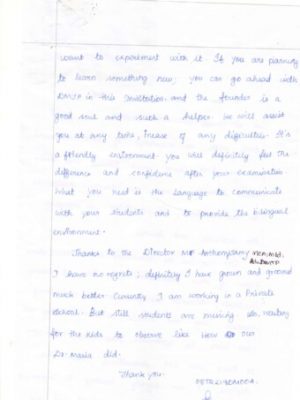 want to experiment with it. If you are planning
to learn something new, you can go ahead with
in this Institution. and the founder is a
good soul and such a helper. He will assist
you at any time, incase of any difficulties. It's
a friendly environment you will definitely feel the
difference and confidence after your examination
what you need is the language to communicate
with your students and to provide the bilingual
environment.
Thanks to the Director Mr Anthonysamy
I have no regrets; definitely I have grown and groomed
much better. Currently, I am working in a Private
school. But still students are missing
for the kids to observe like How our
Dr. Maria did.
Thank you.